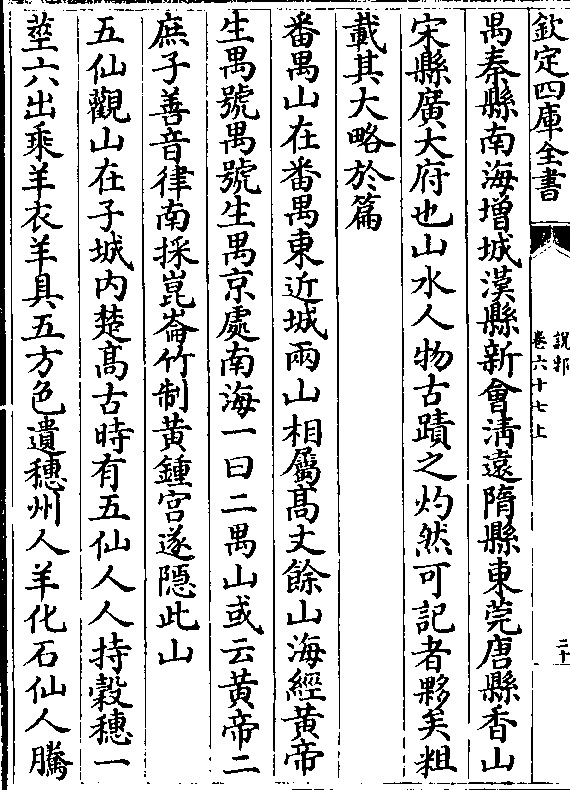 欽定四庫全書
說郛
卷六十七上
二十
禺秦縣南海增城漢縣新會清遠隋縣東莞唐縣香山
宋縣廣大府也山水人物古蹟之灼然可記者夥矣粗
載其大略於篇
番禺山在番禺東近城兩山相屬髙丈餘山海經黄帝
生禺號禺號生禺京處南海一曰二禺山或云黄帝二
庶子善音律南採崑崙竹制黄鍾宫遂隱此山
五仙觀山在子城内楚髙古時有五仙人人持穀穗一
莖六出乘羊衣羊具五方色遺穗州人羊化石仙人騰